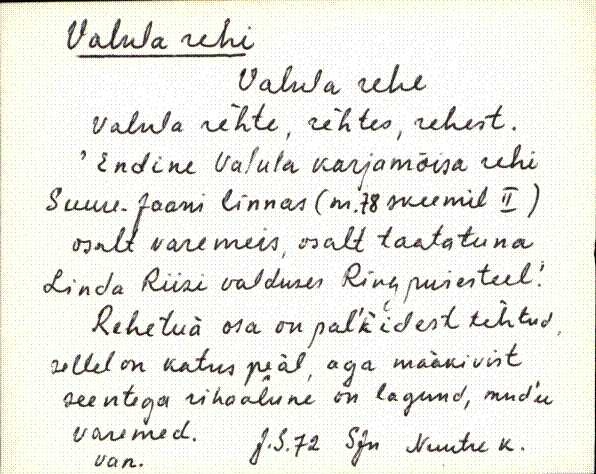 Valula rehi
Valula rehe
Valula rehte, rehtes, rehest.
'Endine Valula karjamõisa rehi
Suure-Jaani linnas (m.78 skeemil II)
osalt varemeis, osalt taatatuna
Linda Riisi valduses Ring puiesteel.'
Rehetuä osa on pal'kidest tehtud,
sellel on katus peäl, aga maakivist
seentega rihaalune on lagund, mud'u
varemed. J.S.72 SJn Nuutre k.
van.